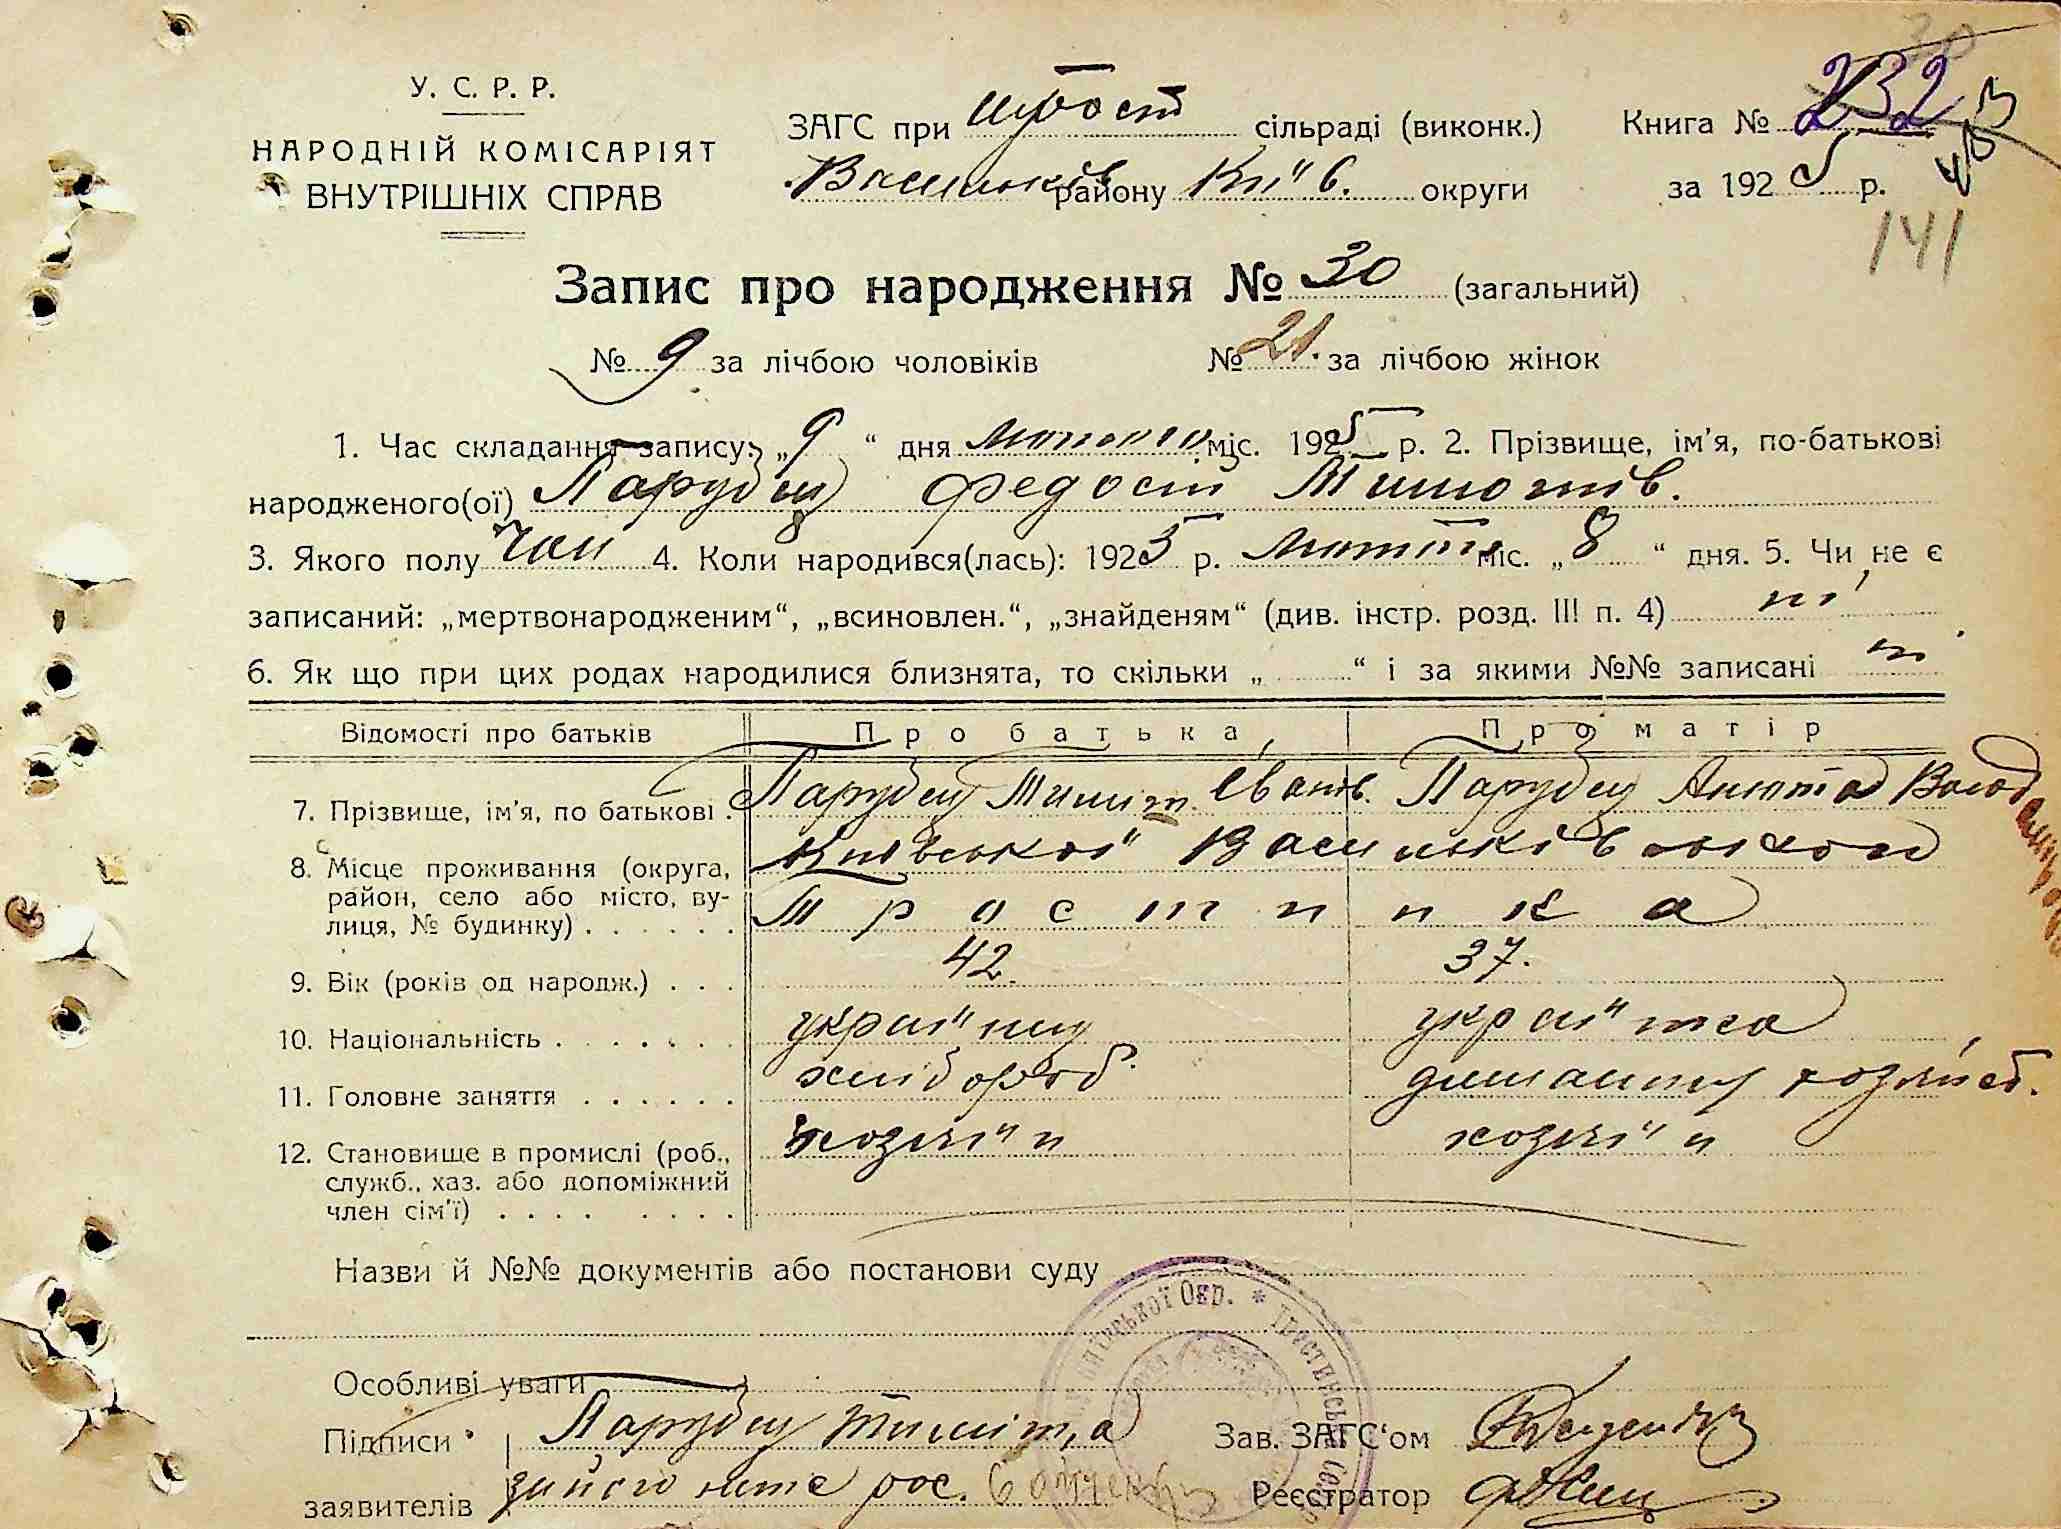 У. С. Р. Р.
НАРОДНІЙ КОМІСАРІЯТ
ВНУТРІШНІХ СПРАВ
ЗАГС при Трост сільраді (виконк.)
Васильків району Київ. округи
Книга № 232
за 1925 р.
141
Запис про народження № 30 (загальний)
№ 9 за лічбою чоловіків № 21. за лічбою жінок
1. Час складання запису: „9“ дня лютого міс. 1925 р. 2. Прізвище, ім'я, по-батькові
народженого(ої) Парубец Федост Тимотів.
3. Якого полу чол 4. Коли народився(лась): 1925 р. міс. „8“ дня. 5. Чи не є
записаний: „мертвонародженим“, „всиновлен.“, „знайденям“ (див. інстр. розд. III п. 4) ні
6. Як що при цих родах народилися близнята, то скільки „ “ і за якими №№ записані ні
Відомості про батьків Про батька Про матір
7. Прізвище, ім'я, по батькові . Парубец Тиміт. Іванів. Парубец Анюта Волод
8. Місце проживання (округа, район, село або місто, вулиця, № будинку) . . . . . . Київської Васильківськой
Тростинка
9. Вік (років од народж.) . . . 42. 37.
10. Національність . . . . . . . україниц українка
11. Головне заняття . . . . . . хлібороб. домашнє хозяйст.
12. Становище в промислі (роб., служб., хаз. або допоміжний член сім'ї) . . . . . . . . хозяїн хозяїн
Назви й №№ документів або постанови суду
Особливі уваги
Підписи Парубец Тиміта Зав. ЗАГС'ом
заявителів за його непис рос. Реєстратор